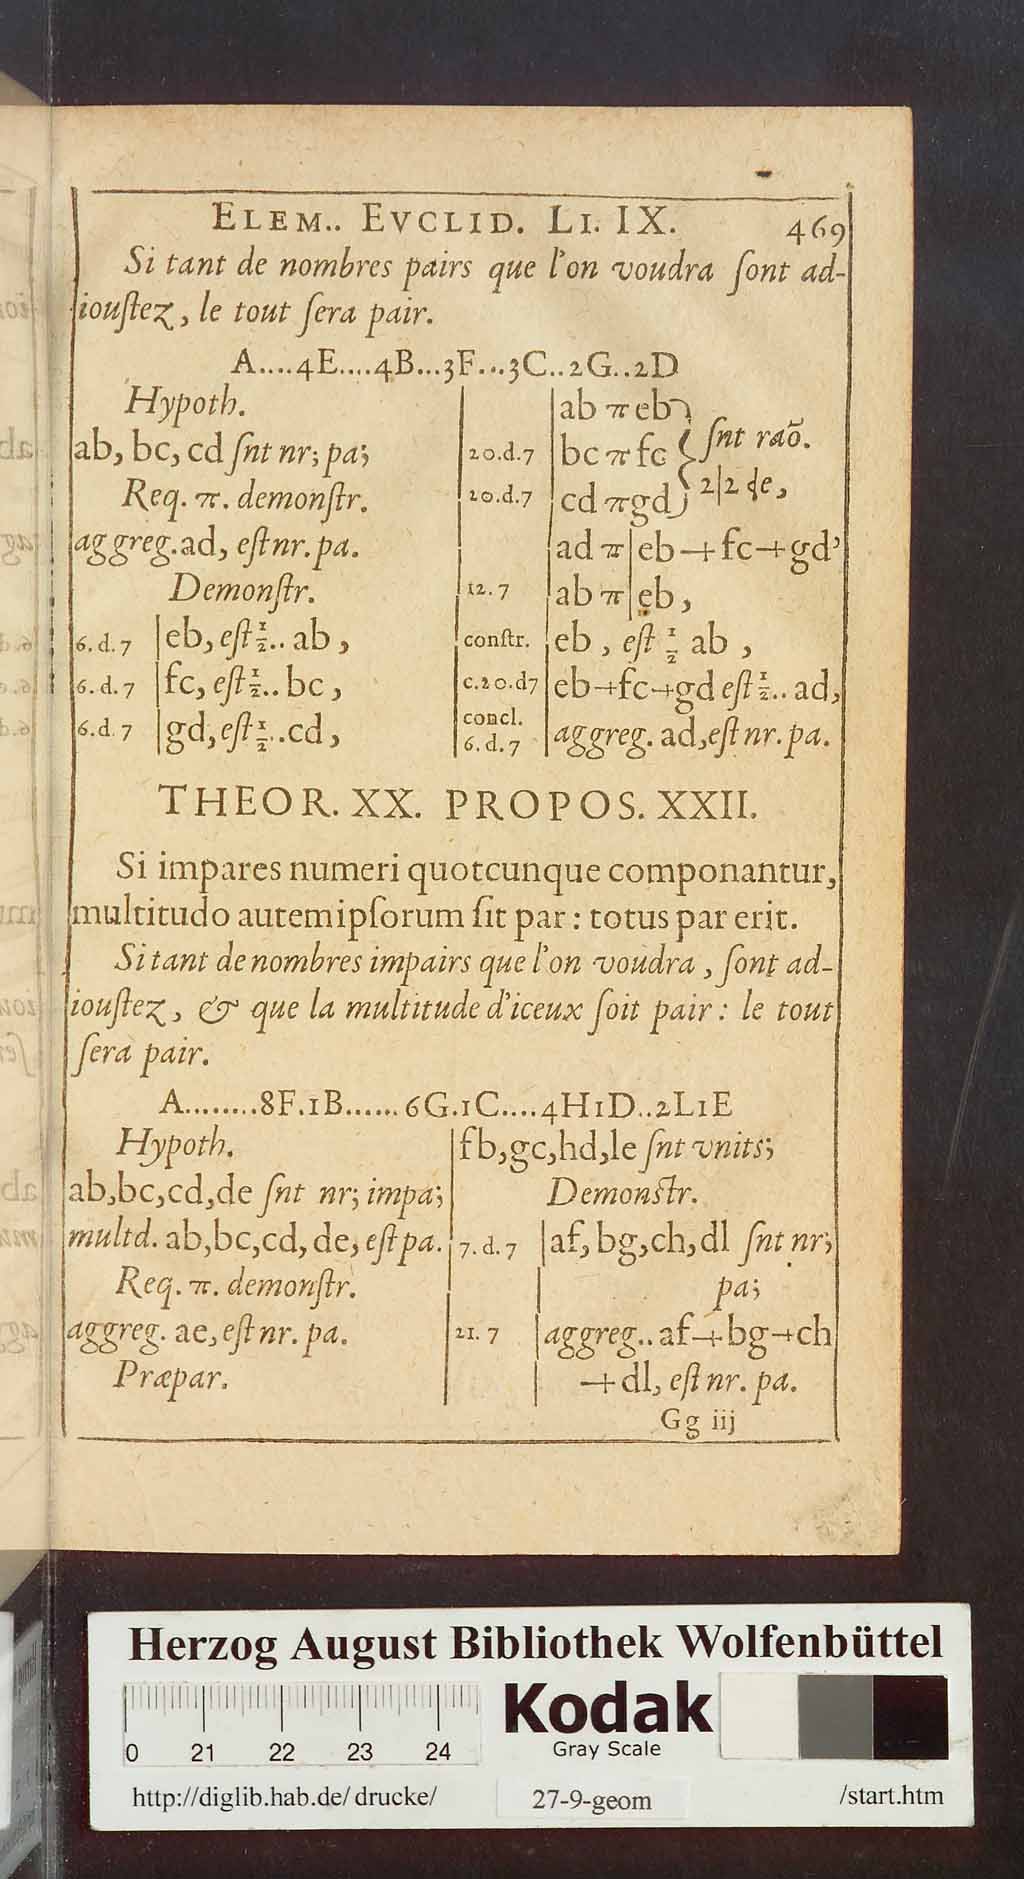 ELEM.. EVCLID. LI. IX. 469
Si tant de nombres pairs que l'on voudra ſont ad-
iouſtez, le tout ſera pair.
A....4E....4B...3F...3C..2G..2D
Hypoth.
ab, bc, cd ſnt nr; pa;
Req. π. demonſtr.
aggreg. ad, eſt nr. pa.
Demonſtr.
6. d. 7 | eb, eſt ½.. ab,
6. d. 7 | fc, eſt ½.. bc,
6. d. 7 | gd, eſt ½.. cd,
ab π eb
20.d.7 | bc π fc } ſnt raõ.
20.d.7 | cd π gd } 2|2 de,
ad π | eb + fc + gd,
12. 7 | ab π | eb,
conſtr. | eb, eſt ½ ab,
c.20.d7 | eb + fc + gd eſt ½.. ad,
concl.
6. d. 7 | aggreg. ad, eſt nr. pa.
THEOR. XX. PROPOS. XXII.
Si impares numeri quotcunque componantur,
multitudo autem ipſorum ſit par : totus par erit.
Si tant de nombres impairs que l'on voudra, ſont ad-
iouſtez, & que la multitude d'iceux ſoit pair : le tout
ſera pair.
A........8F.1B......6G.1C....4H1D..2L1E
Hypoth.
ab,bc,cd,de ſnt nr; impa;
multd. ab,bc,cd, de, eſt pa.
Req. π. demonſtr.
aggreg. ae, eſt nr. pa.
Præpar.
fb,gc,hd,le ſnt vnits;
Demonſtr.
7. d. 7 | af, bg, ch, dl ſnt nr;
pa;
21. 7 | aggreg.. af + bg + ch
+ dl, eſt nr. pa.
Gg iij
Herzog August Bibliothek Wolfenbüttel
0 21 22 23 24
Kodak
Gray Scale
http://diglib.hab.de/ drucke/ 27-9-geom /start.htm